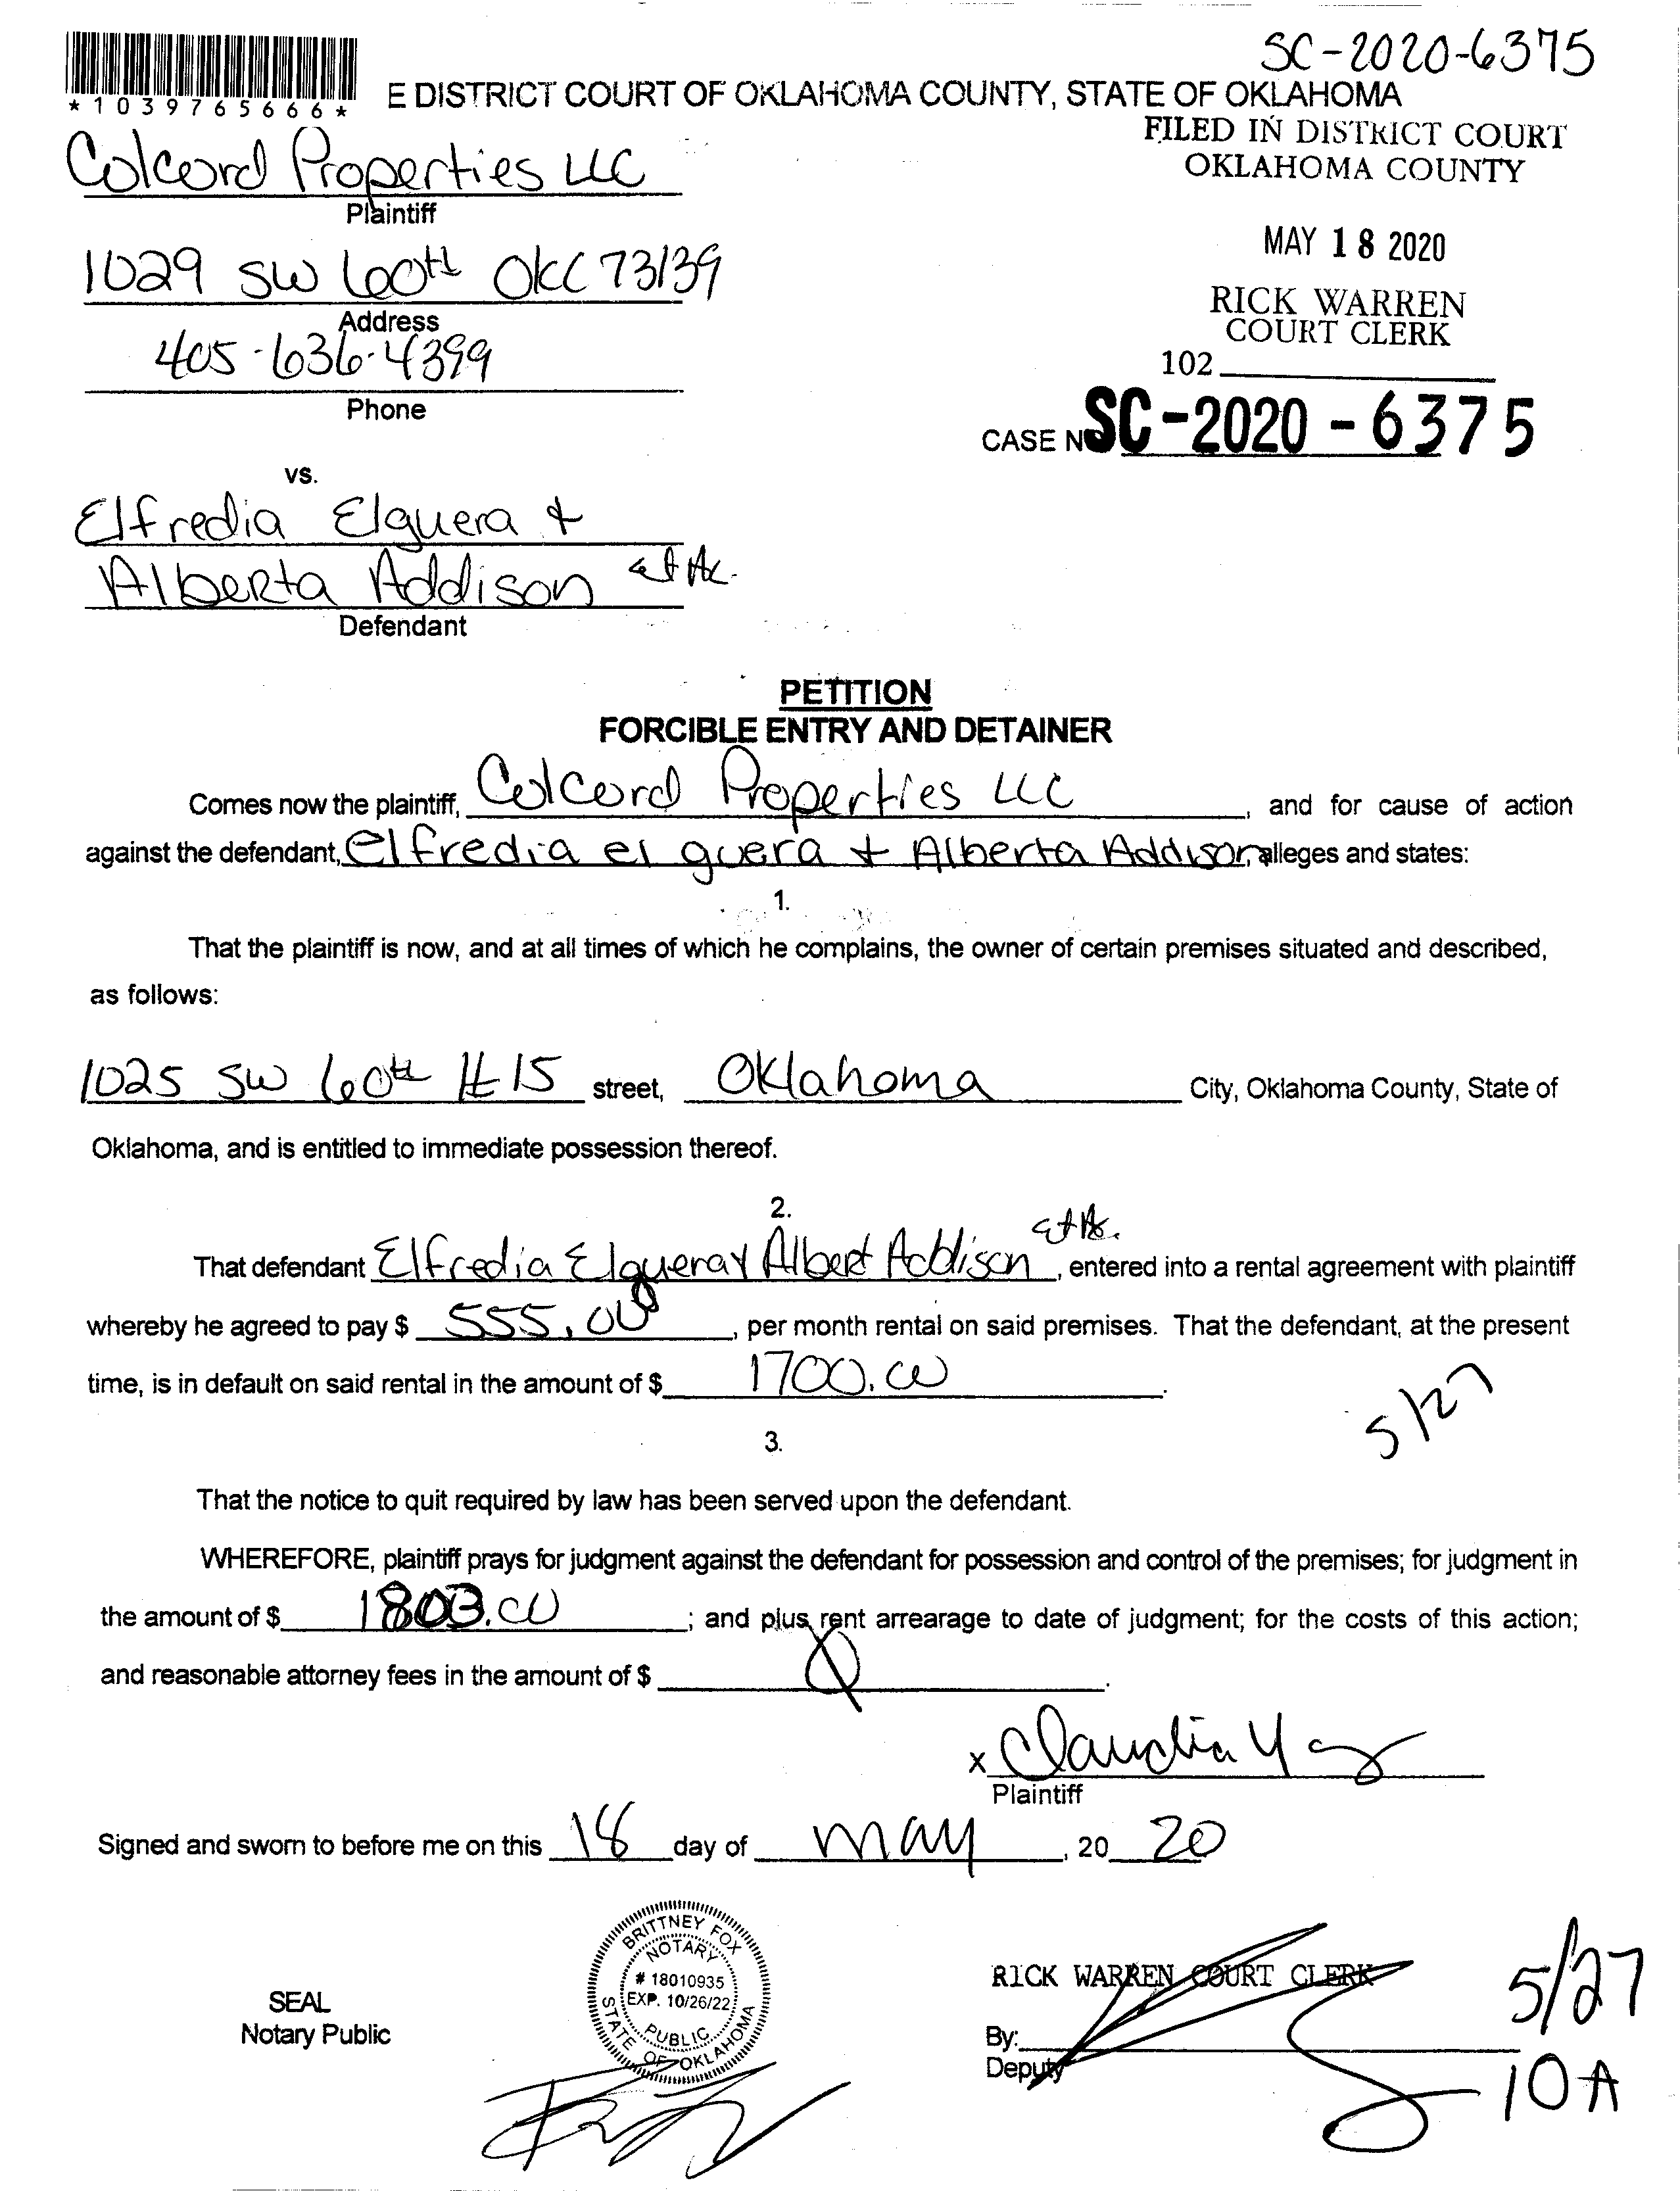 SC-2020-6375
*1039765666*
E DISTRICT COURT OF OKLAHOMA COUNTY, STATE OF OKLAHOMA
FILED IN DISTRICT COURT
OKLAHOMA COUNTY
Colcord Properties LLC
Plaintiff
MAY 18 2020
1029 SW 60th OKC 73139
Address
RICK WARREN
COURT CLERK
405-636-4399
102
Phone
CASE NO SC-2020-6375
vs.
Elfredia Elguera +
Alberta Addison et Al.
Defendant
PETITION
FORCIBLE ENTRY AND DETAINER
Comes now the plaintiff, Colcord Properties LLC, and for cause of action
against the defendant, Elfredia el guera + Alberta Addison, alleges and states:
1.
That the plaintiff is now, and at all times of which he complains, the owner of certain premises situated and described,
as follows:
1025 SW 60th #15 street, Oklahoma City, Oklahoma County, State of
Oklahoma, and is entitled to immediate possession thereof.
2.
That defendant Elfredia Elguera + Albert Addison et Al., entered into a rental agreement with plaintiff
whereby he agreed to pay $ 555.00, per month rental on said premises. That the defendant, at the present
time, is in default on said rental in the amount of $ 1700.00.
5/27
3.
That the notice to quit required by law has been served upon the defendant.
WHEREFORE, plaintiff prays for judgment against the defendant for possession and control of the premises; for judgment in
the amount of $ 1803.00; and plus rent arrearage to date of judgment; for the costs of this action;
and reasonable attorney fees in the amount of $ 0.
x Claudia
Plaintiff
Signed and sworn to before me on this 18 day of may, 20 20
BRITTNEY FOX
NOTARY
# 18010935
EXP. 10/26/22
PUBLIC
STATE OF OKLAHOMA
SEAL
Notary Public
RICK WARREN COURT CLERK
By:
Deputy
5/27
10A